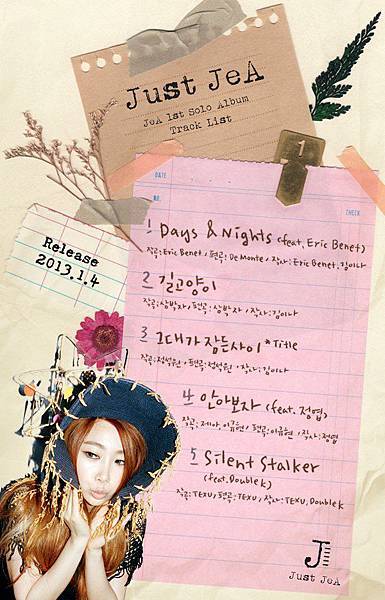 Just JeA
JeA 1st Solo Album
Track List
1
DATE
NO.
CHECK
Release
2013.1.4
1 Days & Nights (feat. Eric Benet)
작곡: Eric Benet / 편곡: De Monte / 작사: Eric Benet, 김이나
2 길고양이
작곡: 심박자 / 편곡: 심박자 / 작사: 김이나
3 그대가 잠든사이 *Title
작곡: 정석원 / 편곡: 정석원 / 작사: 김이나
4 안아보자 (feat. 정엽)
작곡: 제아, 이규현 / 편곡: 이규현 / 작사: 정엽
5 Silent Stalker
(feat. Double K)
작곡: TEXU, 편곡: TEXU, 작사: TEXU, Double K
J
Just JeA